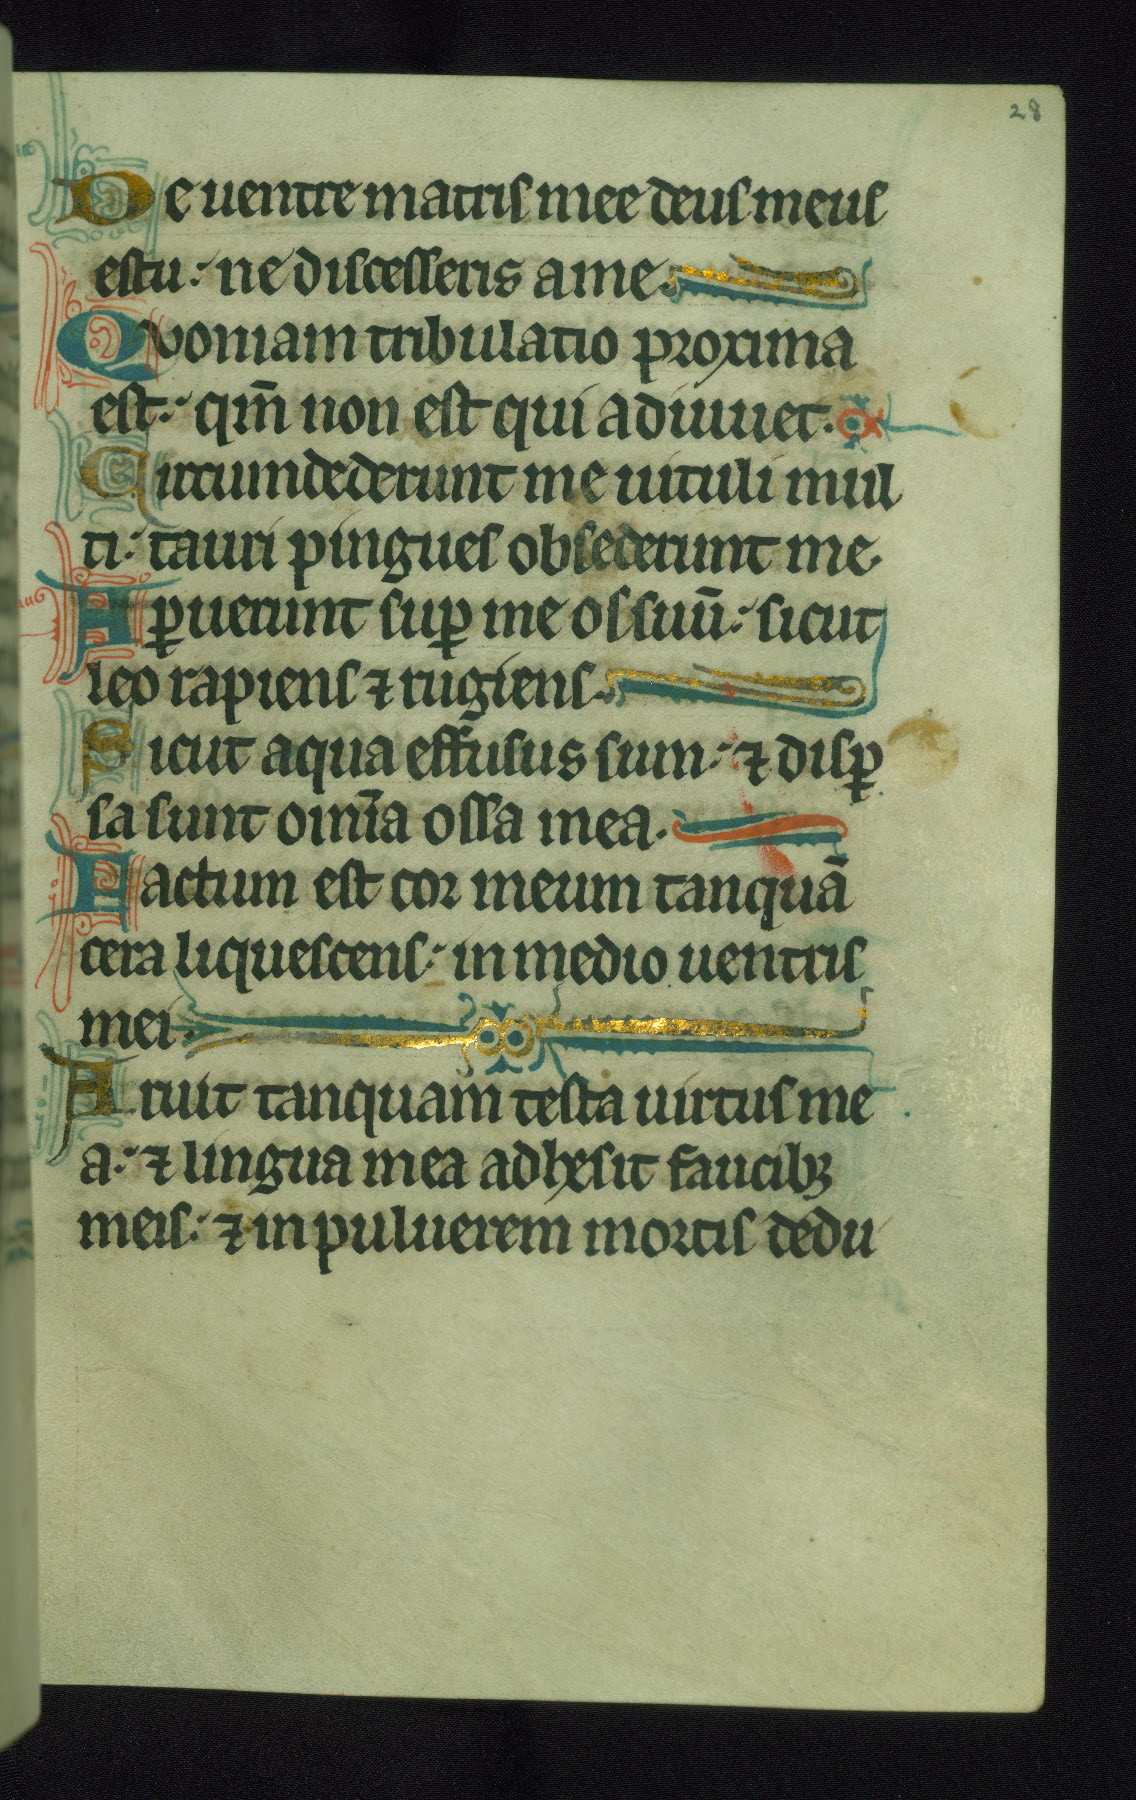 28
De uentre matris mee deus meus
es tu: ne discesseris a me.
Quoniam tribulatio proxima
est: qm̄ non est qui adiuuet.
Circumdederunt me uituli mul
ti: tauri pingues obsederunt me.
Aꝑuerunt suꝑ me os suū: sicut
leo rapiens ⁊ rugiens.
Sicut aqua effusus sum: ⁊ disꝑ
sa sunt omīa ossa mea.
Factum est cor meum tanquā
cera liquescens: in medio uentris
mei.
Aruit tanquam testa uirtus me
a: ⁊ lingua mea adhesit faucibꝫ
meis: ⁊ in puluerem mortis dedu